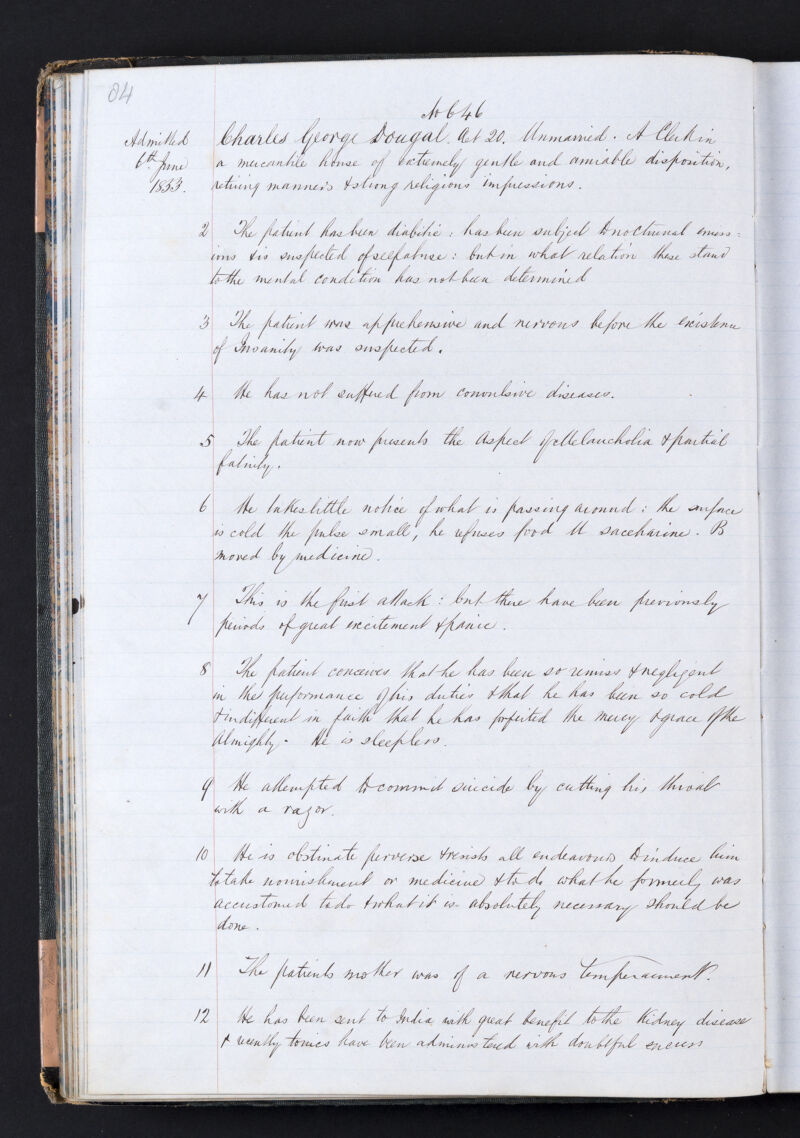 84
No 646
Admitted
6th June
1853.
Charles George Dougal. Aet 20. Unmarried. A Clerk in
a mercantile house of extremely gentle and amiable disposition,
retiring manners & strong religious impressions.
2 The patient has been diabetic: has been subject to nocturnal emiss=
ions & is suspected of self abuse: but in what relation these stand
to the mental condition has not been determined
3 The patient was apprehensive and nervous before the existence
of Insanity was suspected.
4 He has not suffered from convulsive diseases.
5 The patient now presents the aspect of Melancholia & partial
fatuity.
6 He takes little notice of what is passing around: the surface
is cold the pulse small, he refuses food U saccharine. B
moved by medicine.
7 This is the first attack: but there have been previously
periods of great excitement & panic.
8 The patient conceives that he has been so remiss & negligent
in the performance of his duties & that he has been so cold
& indifferent in faith that he has forfeited the mercy & grace of the
Almighty. He is sleepless.
9 He attempted to commit suicide by cutting his throat
with a razor.
10 He is obstinate perverse & resists all endeavours to induce him
to take nourishment or medicine & to do what he formerly was
accustomed to do & what it is absolutely necessary should be
done.
11 The patients mother was of a nervous temperament.
12 He has been sent to India with great benefit to the Kidney disease
& recently tonics have been administered with doubtful success